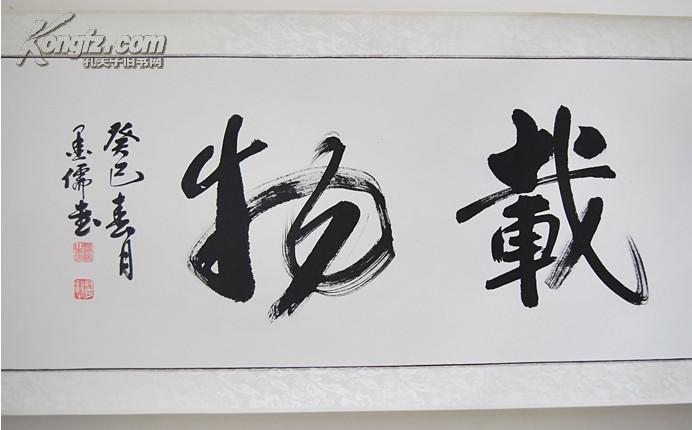 Kongfz.com
孔夫子旧书网
載物
癸巳春月
墨儒書